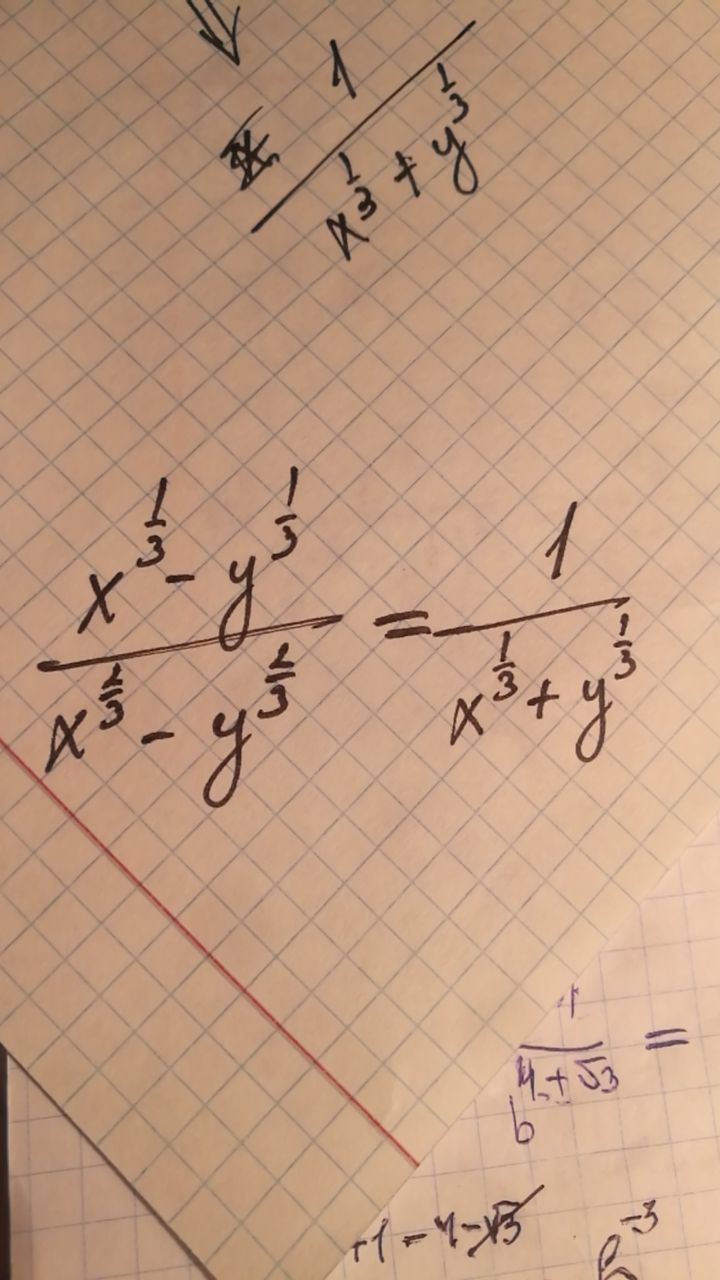 ⇓
1 / (x^(1/3) + y^(1/3))
(x^(1/3) - y^(1/3)) / (x^(2/3) - y^(2/3)) = 1 / (x^(1/3) + y^(1/3))
=
+1 = 4 - √3
-3